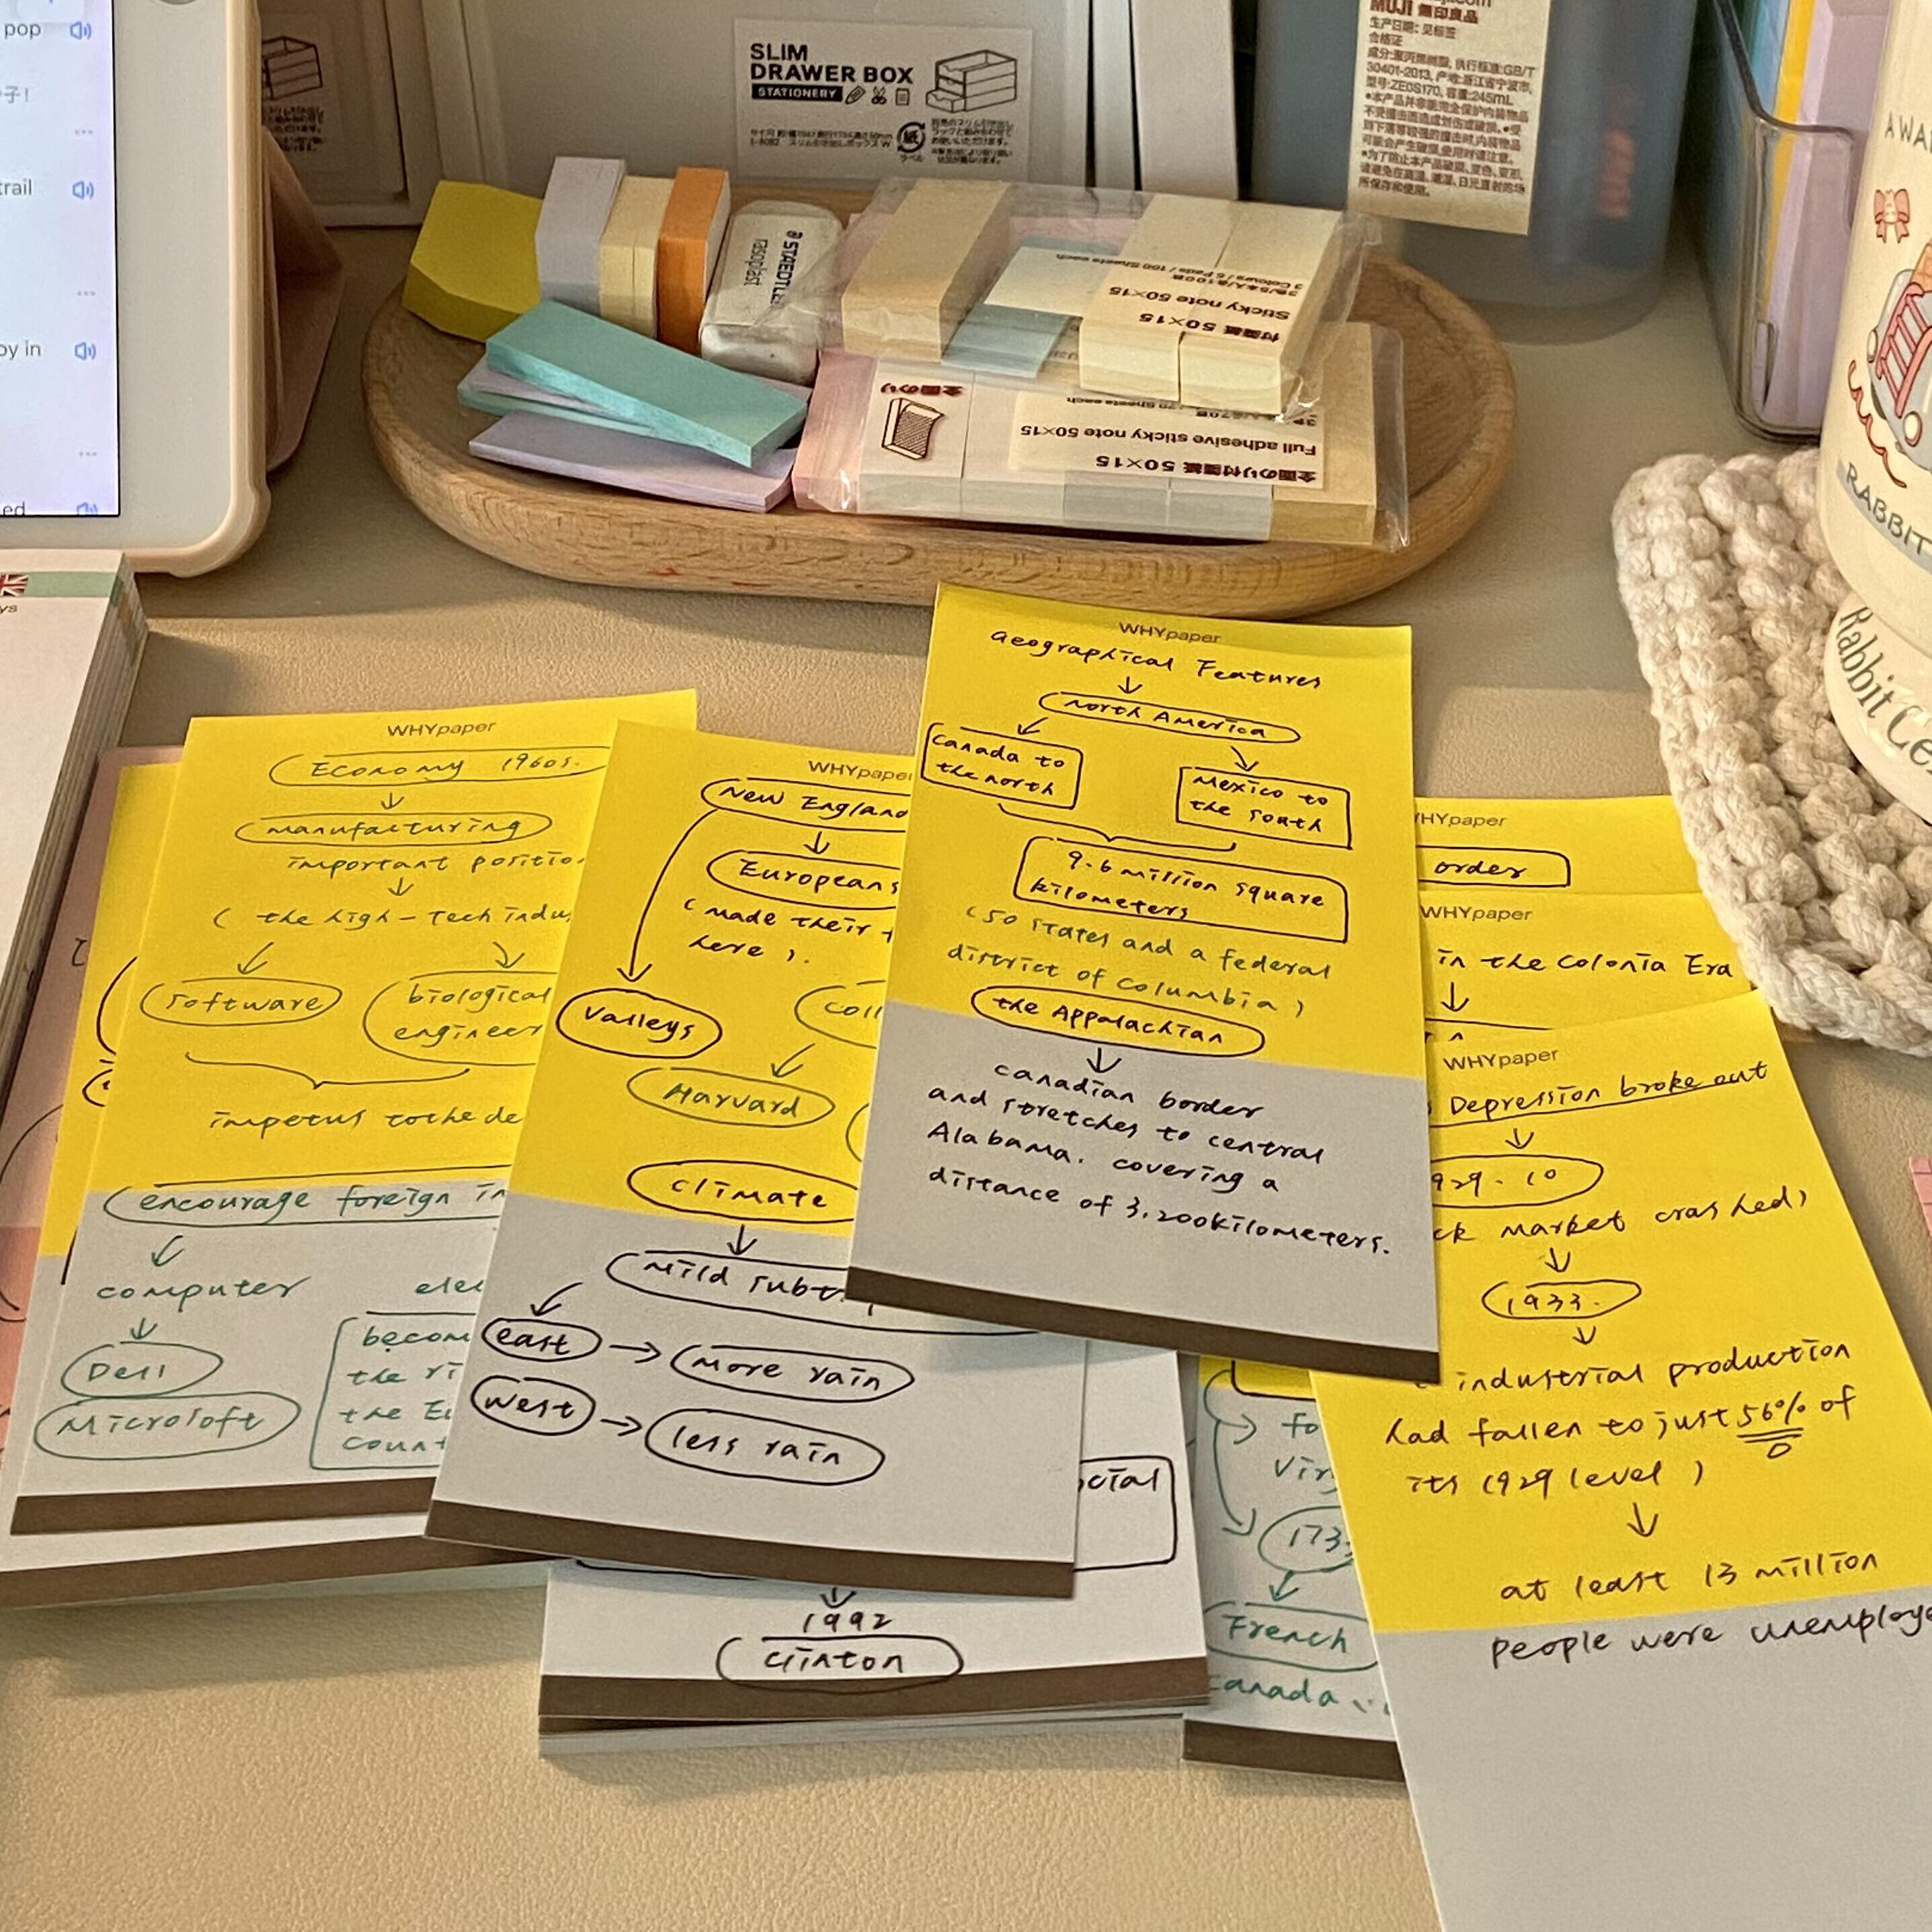 pop
子!
trail
by in
ed
SLIM
DRAWER BOX
STATIONERY
MUJI 無印良品
生产日期: 见标签
合格证
成分:聚丙烯树脂, 执行标准:GB/T
30401-2013, 产地:浙江省宁波市,
型号:ZE0S170, 容量:245mL
STAEDTLER
rasoplast
付箋紙 50×15
Sticky note 50×15
3 Colours / 6 Pads / 100 Sheets each
全面のり
全面のり付箋紙 50×15
Full adhesive sticky note 50×15
AWA
RABBIT
Rabbit Ce
WHYpaper
Economy 1960s.
manufacturing
important positio
( the high-tech indus
software
biological
engineer
impetus to the de
encourage foreign in
computer
ele
Dell
Microsoft
becom
the ri
the Eu
count
WHYpape
New England
Europeans
( made their
here ).
Valleys
Coll
Harvard
climate
Mild subt
east
more rain
west
less rain
cial
1992
Clinton
WHYpaper
Geographical Features
North America
Canada to
the north
Mexico to
the south
9.6 million square
kilometers
(50 states and a federal
district of columbia)
the Appalachian
canadian border
and stretches to central
Alabama. covering a
distance of 3.200kilometers.
WHYpaper
order
WHYpaper
in the Colonia Era
fo
Vir
173
French
Canada
WHYpaper
Depression broke out
929.10
ck market crashed)
1933.
industrial production
had fallen to just 56% of
its 1929 level )
at least 13 million
people were unemploye